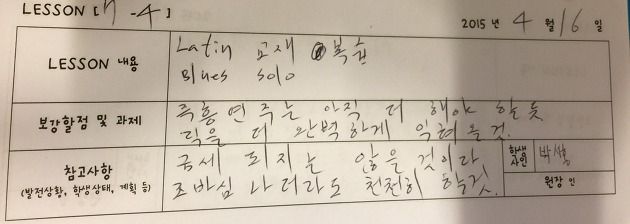 LESSON [ 7 -4 ]
2015 년 4 월 16 일
LESSON 내용
Latin 교재 복습
Blues solo
보강할점 및 과제
즉흥연주는 아직 더 해야 할 듯
릭을 더 완벽하게 익혀올 것.
참고사항
(발전상황, 학생상태, 계획 등)
금세 되지는 않을 것이다
조바심 나더라도 천천히 할것.
학생
사인
원장 인